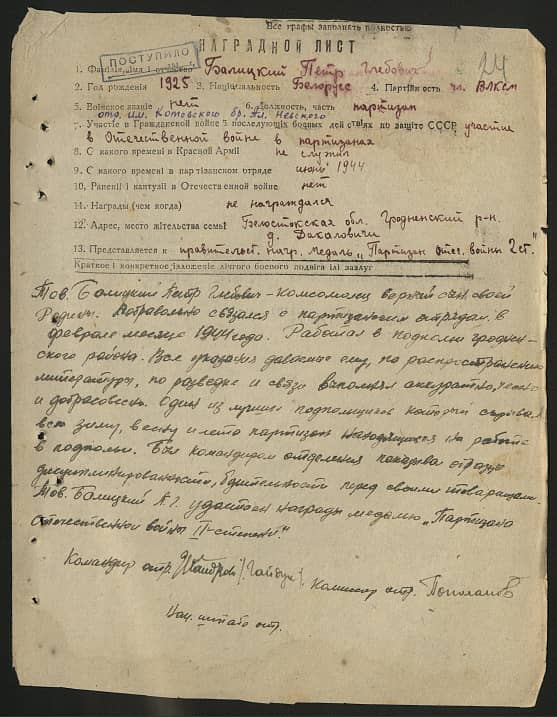 Все графы заполнять полностью
ПОСТУПИЛО
НАГРАДНОЙ ЛИСТ
24
1. Фамилия, имя и отчество Балицкий Петр Глебович
2. Год рождения 1925 3. Национальность Белорус 4. Партийность чл. ВЛКСМ
5. Воинское звание нет 6. Должность, часть партизан
отр. им. Котовского бр. Ал. Невского
7. Участие в Гражданской войне и последующих боевых действиях по защите СССР участие
в Отечественной войне в партизанах
8. С какого времени в Красной Армии не служил
9. С какого времени в партизанском отряде июнь 1944
10. Ранения и контузии в Отечественной войне нет
11. Награды (чем когда) не награждался
12. Адрес, место жительства семьи Белостокская обл. Гродненский р-н.
13. Представляется к правительст. нагр. медаль „Партизан Отеч. войны 2 ст."
Краткое и конкретное изложение личного боевого подвига или заслуг
Тов. Балицкий Петр Глебович – комсомолец верный сын своей
Родины. связался с партизанским отрядом в
феврале месяце 1944 года. Работал в подполье гроднен-
ского района. Все указания даваемые ему, по распространению
литературы, по разведке и связи выполнял аккуратно, честно
и добросовестно. Один из лучших подпольщиков который
всю зиму, весну и лето партизан находящихся на работе
в подполье. Был командиром отделения показывал образцы
дисциплинированности, бдительности перед своими товарищами.
Тов. Балицкий П. Г. удостоен награды медалью „Партизана
отечественной войны II-степени."
Командир отр.
Комиссар отр.
Нач. штаба отр.